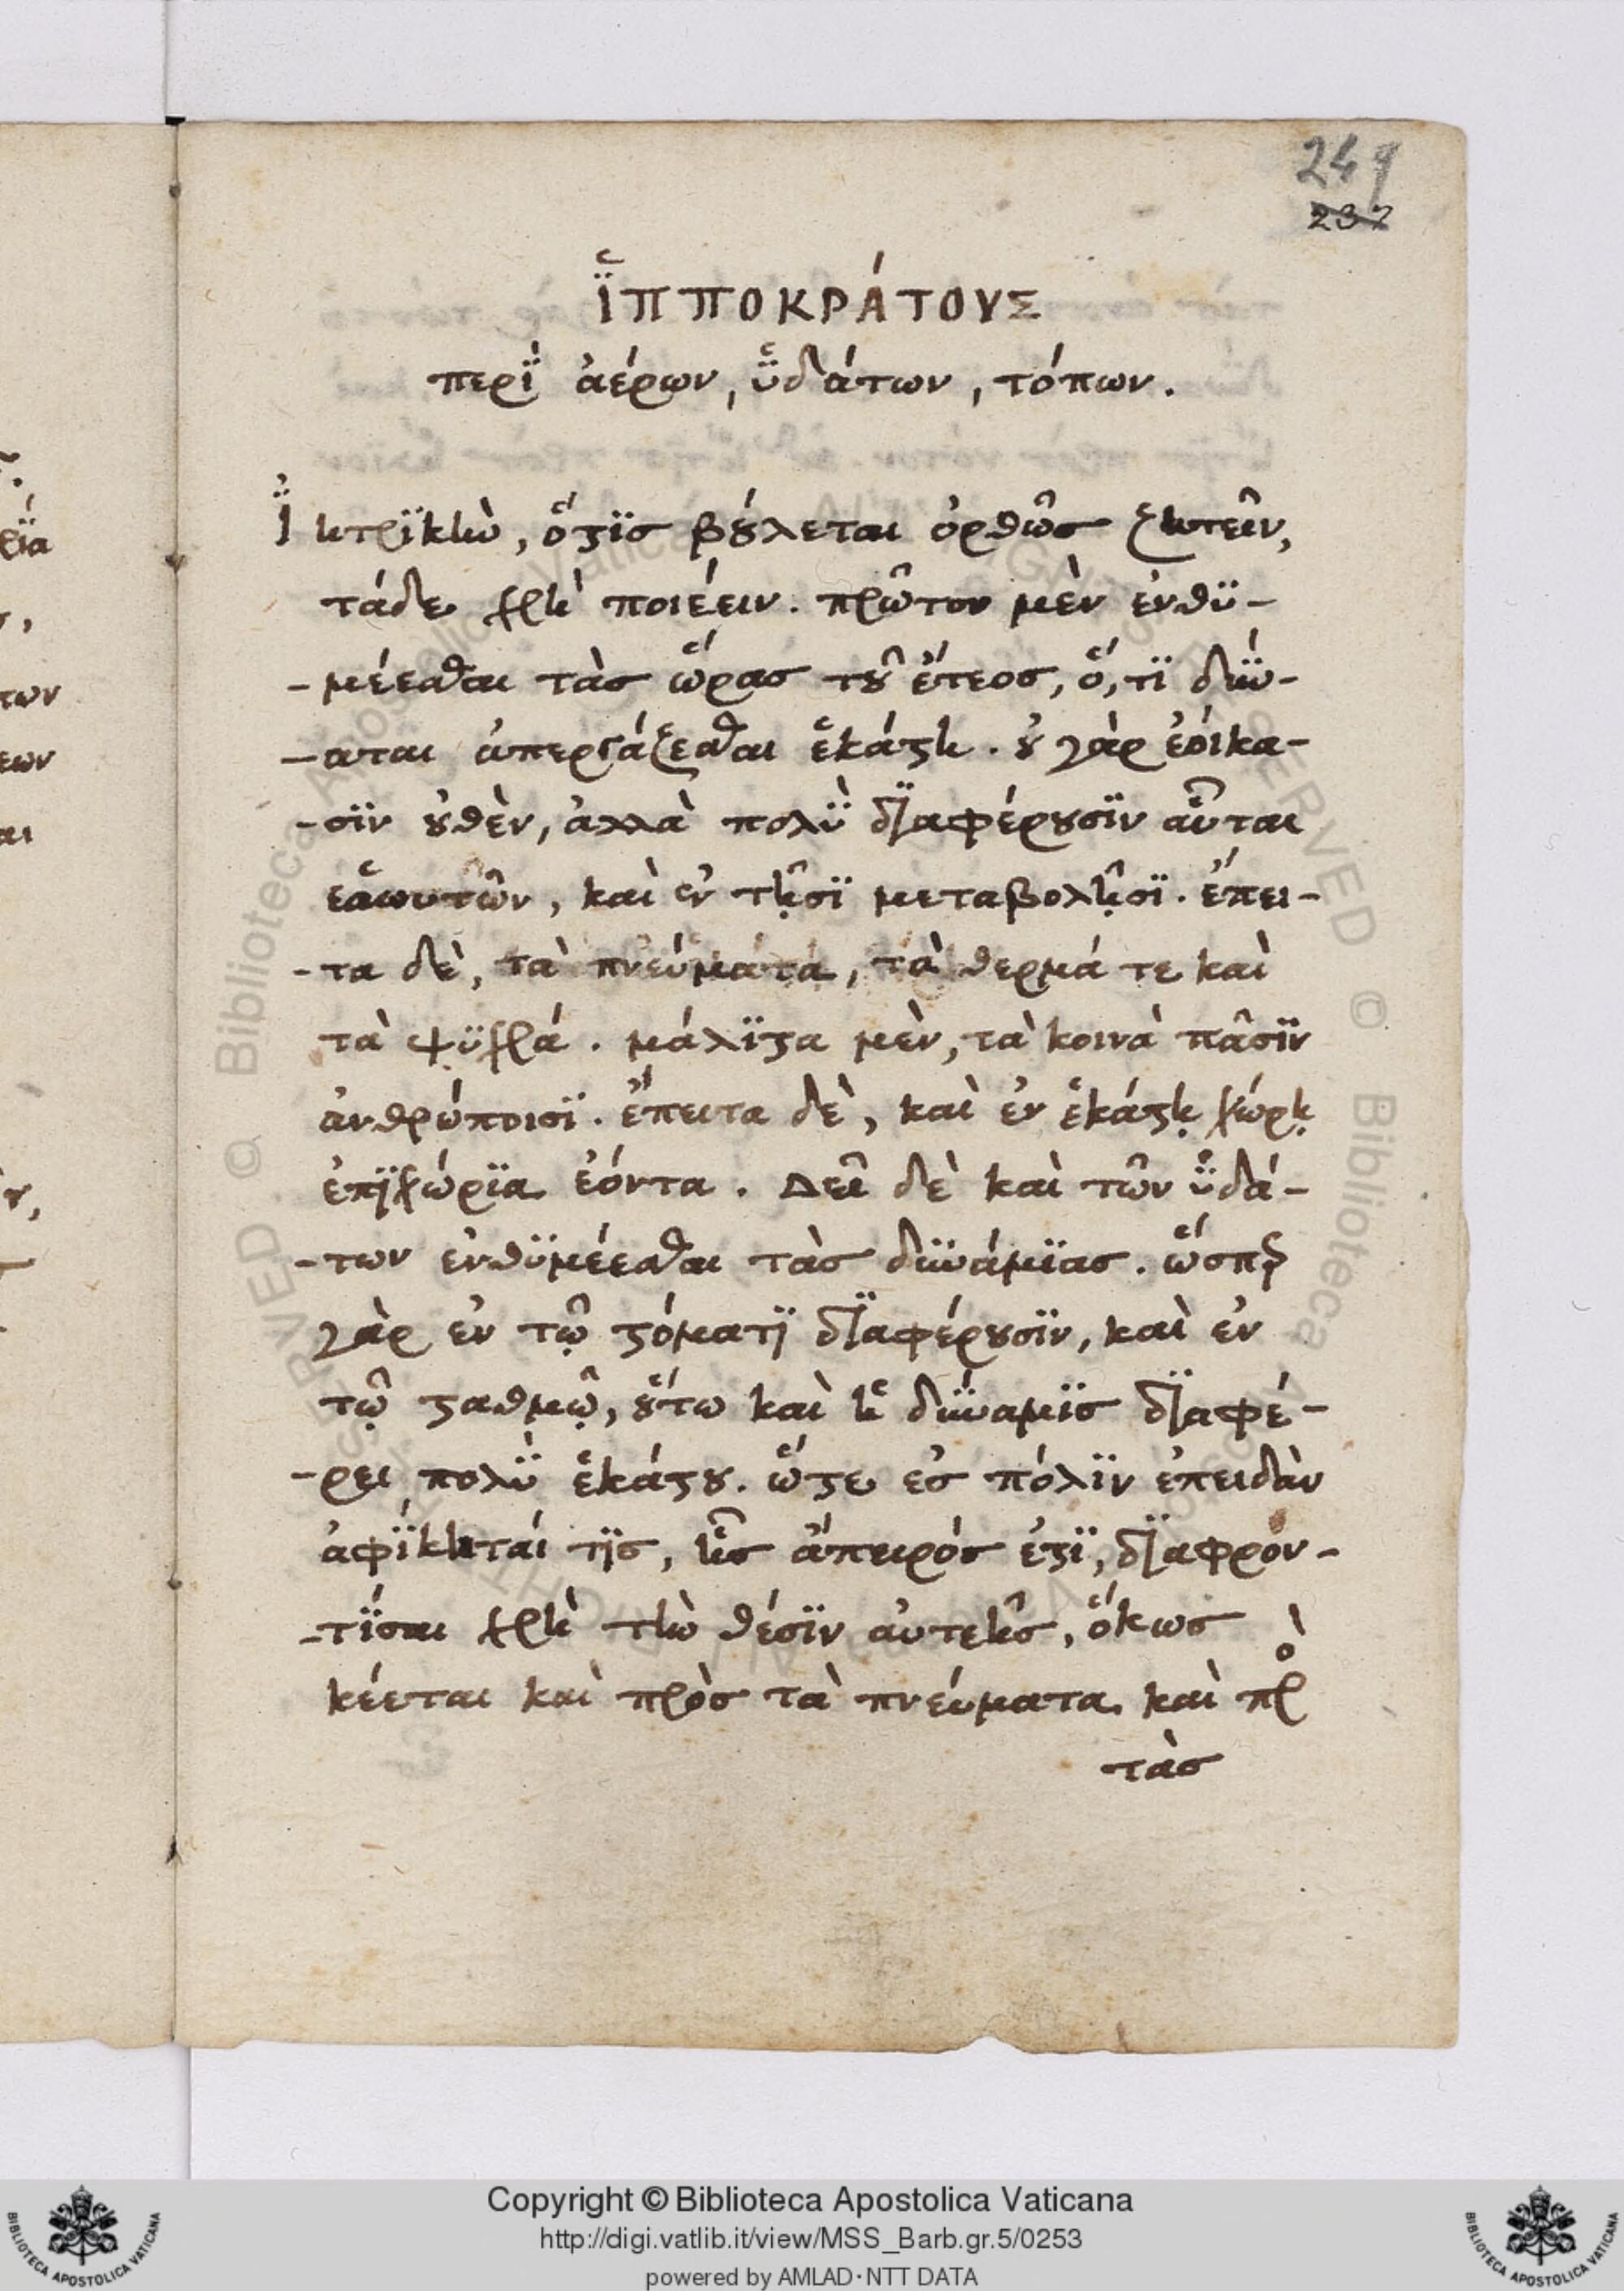 249
237
ἹΠΠΟΚΡΆΤΟΥΣ
περὶ ἀέρων, ὑδάτων, τόπων.
Ἰητρικὴν, ὅστις βούλεται ὀρθῶς ζητεῖν,
τάδε χρὴ ποιέειν. πρῶτον μὲν ἐνθυ-
-μέεσθαι τὰς ὥρας τοῦ ἔτεος, ὅ, τι δύν-
-αται ἀπεργάζεσθαι ἑκάστη. οὐ γὰρ ἐοίκα-
-σιν οὐθὲν, ἀλλὰ πολὺ διαφέρουσιν αὗται
ἑαωυτῶν, καὶ ἐν τῇσι μεταβολῇσι. ἔπει-
-τα δὲ, τὰ πνεύματα, τὰ θερμά τε καὶ
τὰ ψυχρά. μάλιστα μὲν, τὰ κοινὰ πᾶσιν
ἀνθρώποισι. ἔπειτα δὲ, καὶ ἐν ἑκάστῃ χώρῃ
ἐπιχώρια ἐόντα. Δεῖ δὲ καὶ τῶν ὑδά-
-των ἐνθυμέεσθαι τὰς δυνάμιας. ὥσπερ
γὰρ ἐν τῷ στόματι διαφέρουσιν, καὶ ἐν
τῷ σταθμῷ, οὕτω καὶ ἡ δύναμις διαφέ-
-ρει πολὺ ἑκάστου. ὥστε ἐς πόλιν ἐπειδὰν
ἀφίκηταί τις, ἧς ἄπειρός ἐστι, διαφρον-
-τίσαι χρὴ τὴν θέσιν αὐτεῆς, ὅκως
κέεται καὶ πρὸς τὰ πνεύματα καὶ πρὸ
τὰς
Copyright © Biblioteca Apostolica Vaticana
http://digi.vatlib.it/view/MSS_Barb.gr.5/0253
powered by AMLAD·NTT DATA